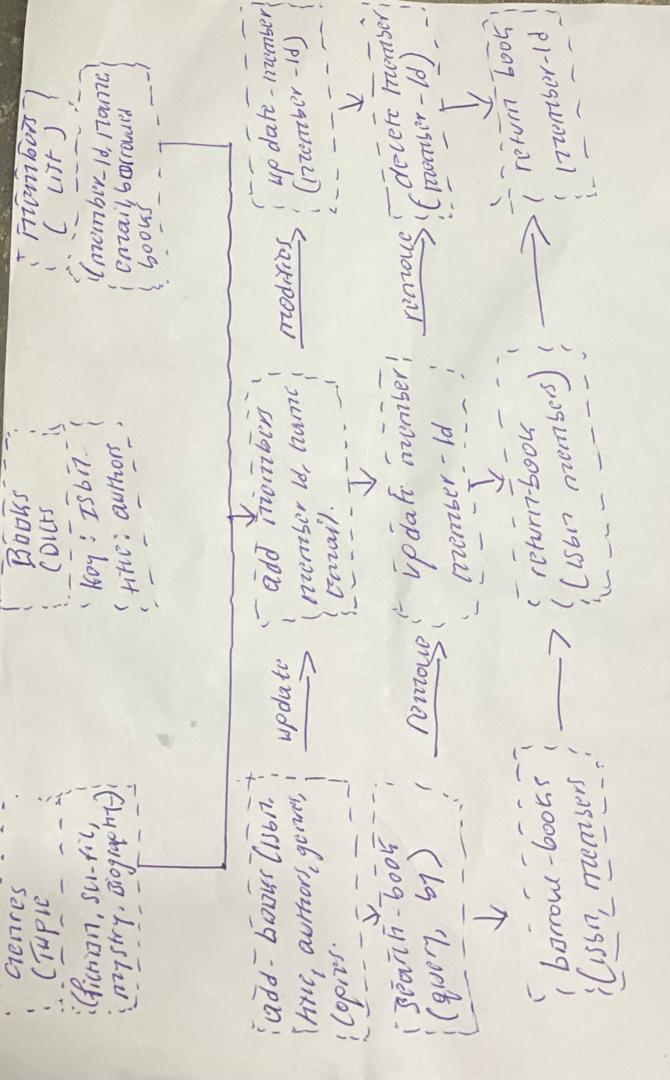 Genres
(Tuple
(fiction, sci-fil,
mystry, Biography)
Books
(Dicts
key: Isbn.
title: authors
members
( List )
(member-Id, name
email, borrowed
books
add-books (isbn.
title, authors, genres,
copies.
update
add members
member Id, name
email.
modifies
update-member
(member-Id)
search-book
(query, by)
remove
update member
member-Id
remove
delete member
(member-Id)
borrow-books
(isbn, members
return-book
(isbn members)
return book
(member-Id